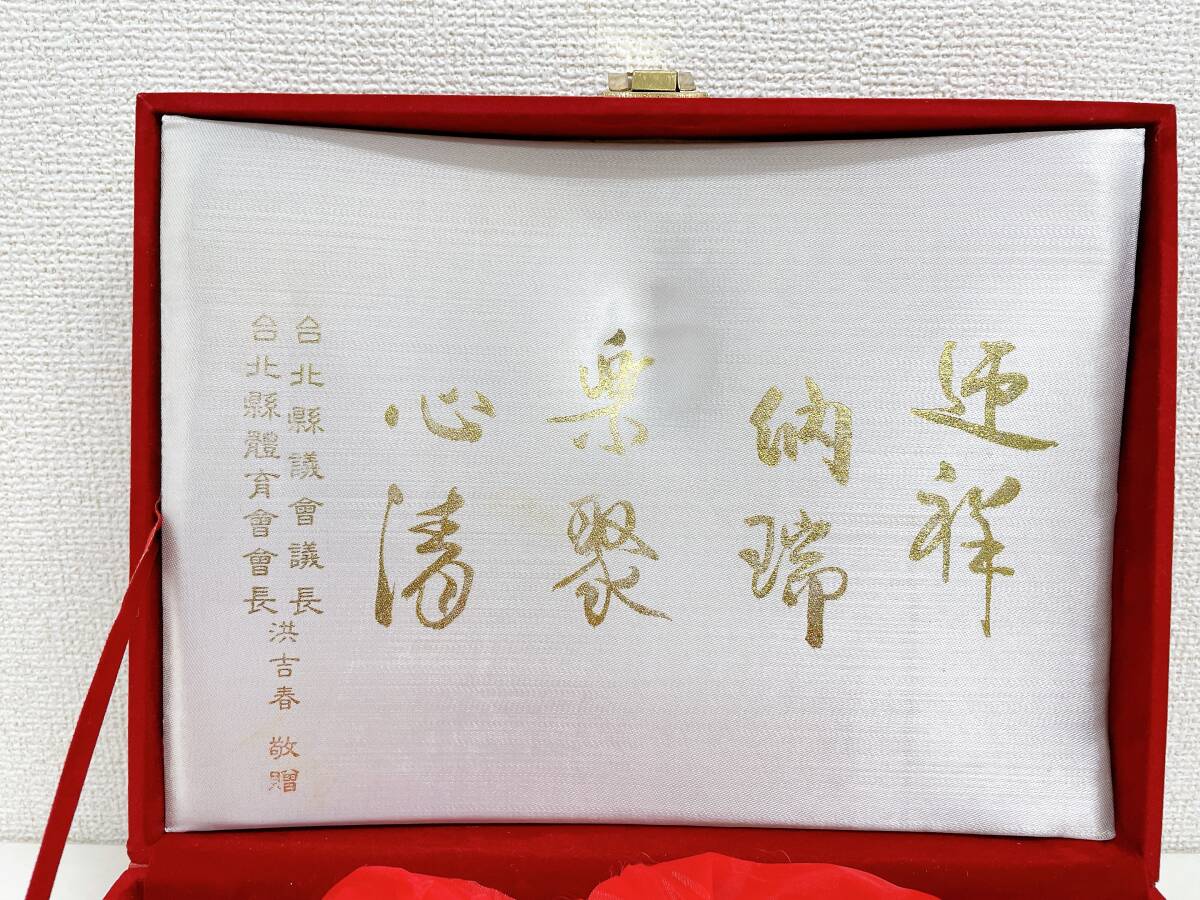 迎祥
納瑞
樂聚
心清
台北縣議會議長
台北縣體育會會長
洪吉春 敬贈